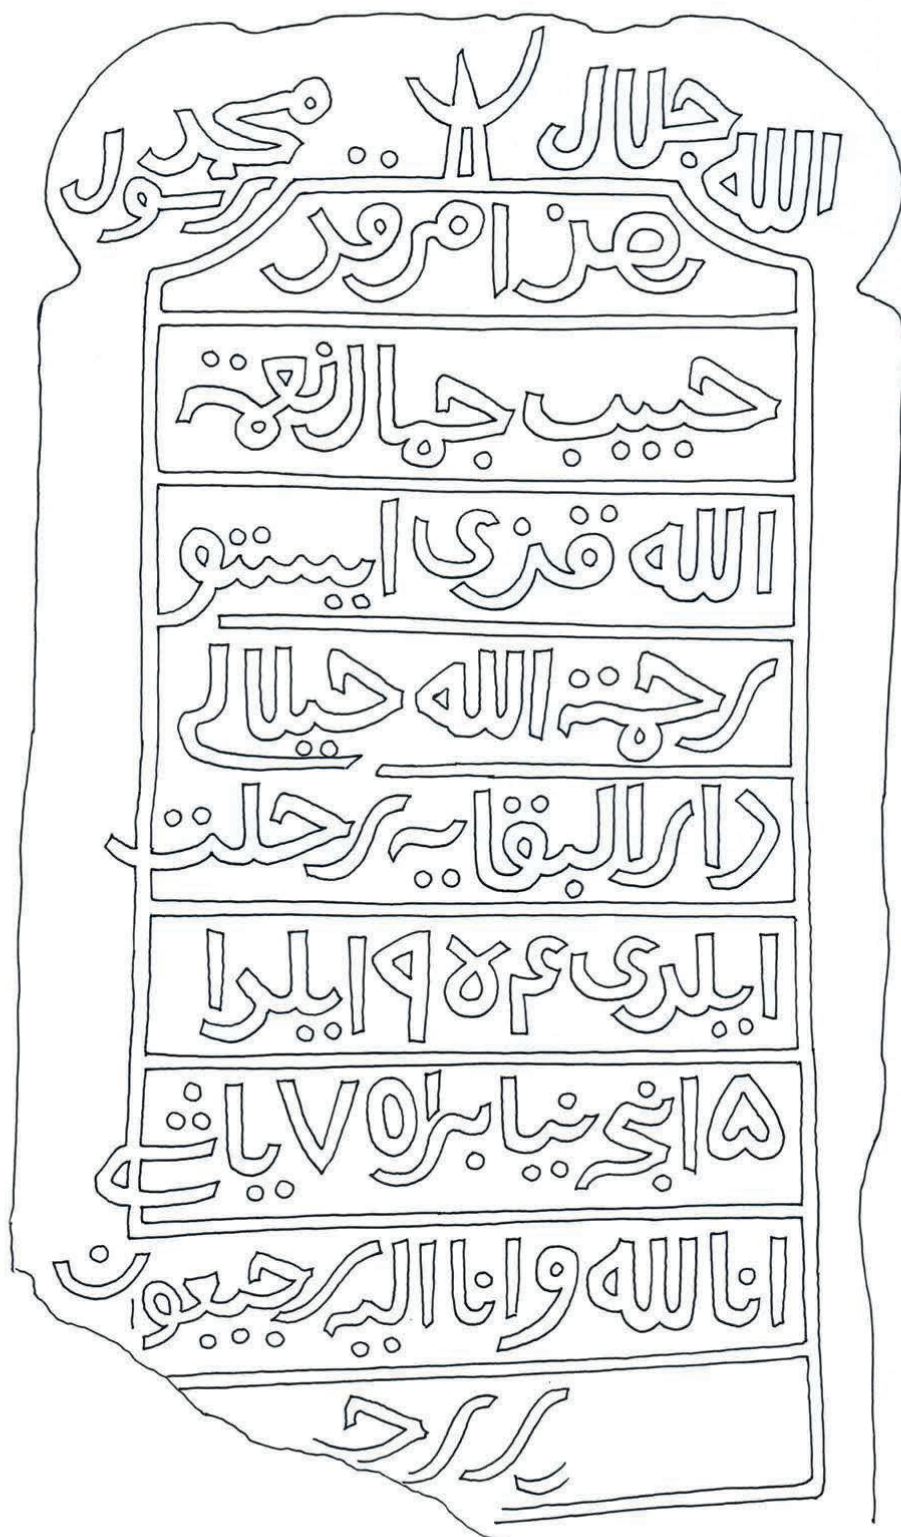 الله جلال محمد رسول
هذا مرقد
حبيب جمال نعمة
الله قزى ايستو
رحمة الله حيلالى
دار البقايه رحلت
ايلدى ۹۵۴ ايلدا
۵ انجر نيابر ۷۵ ياشے
انا لله وانا اليه رجيعون